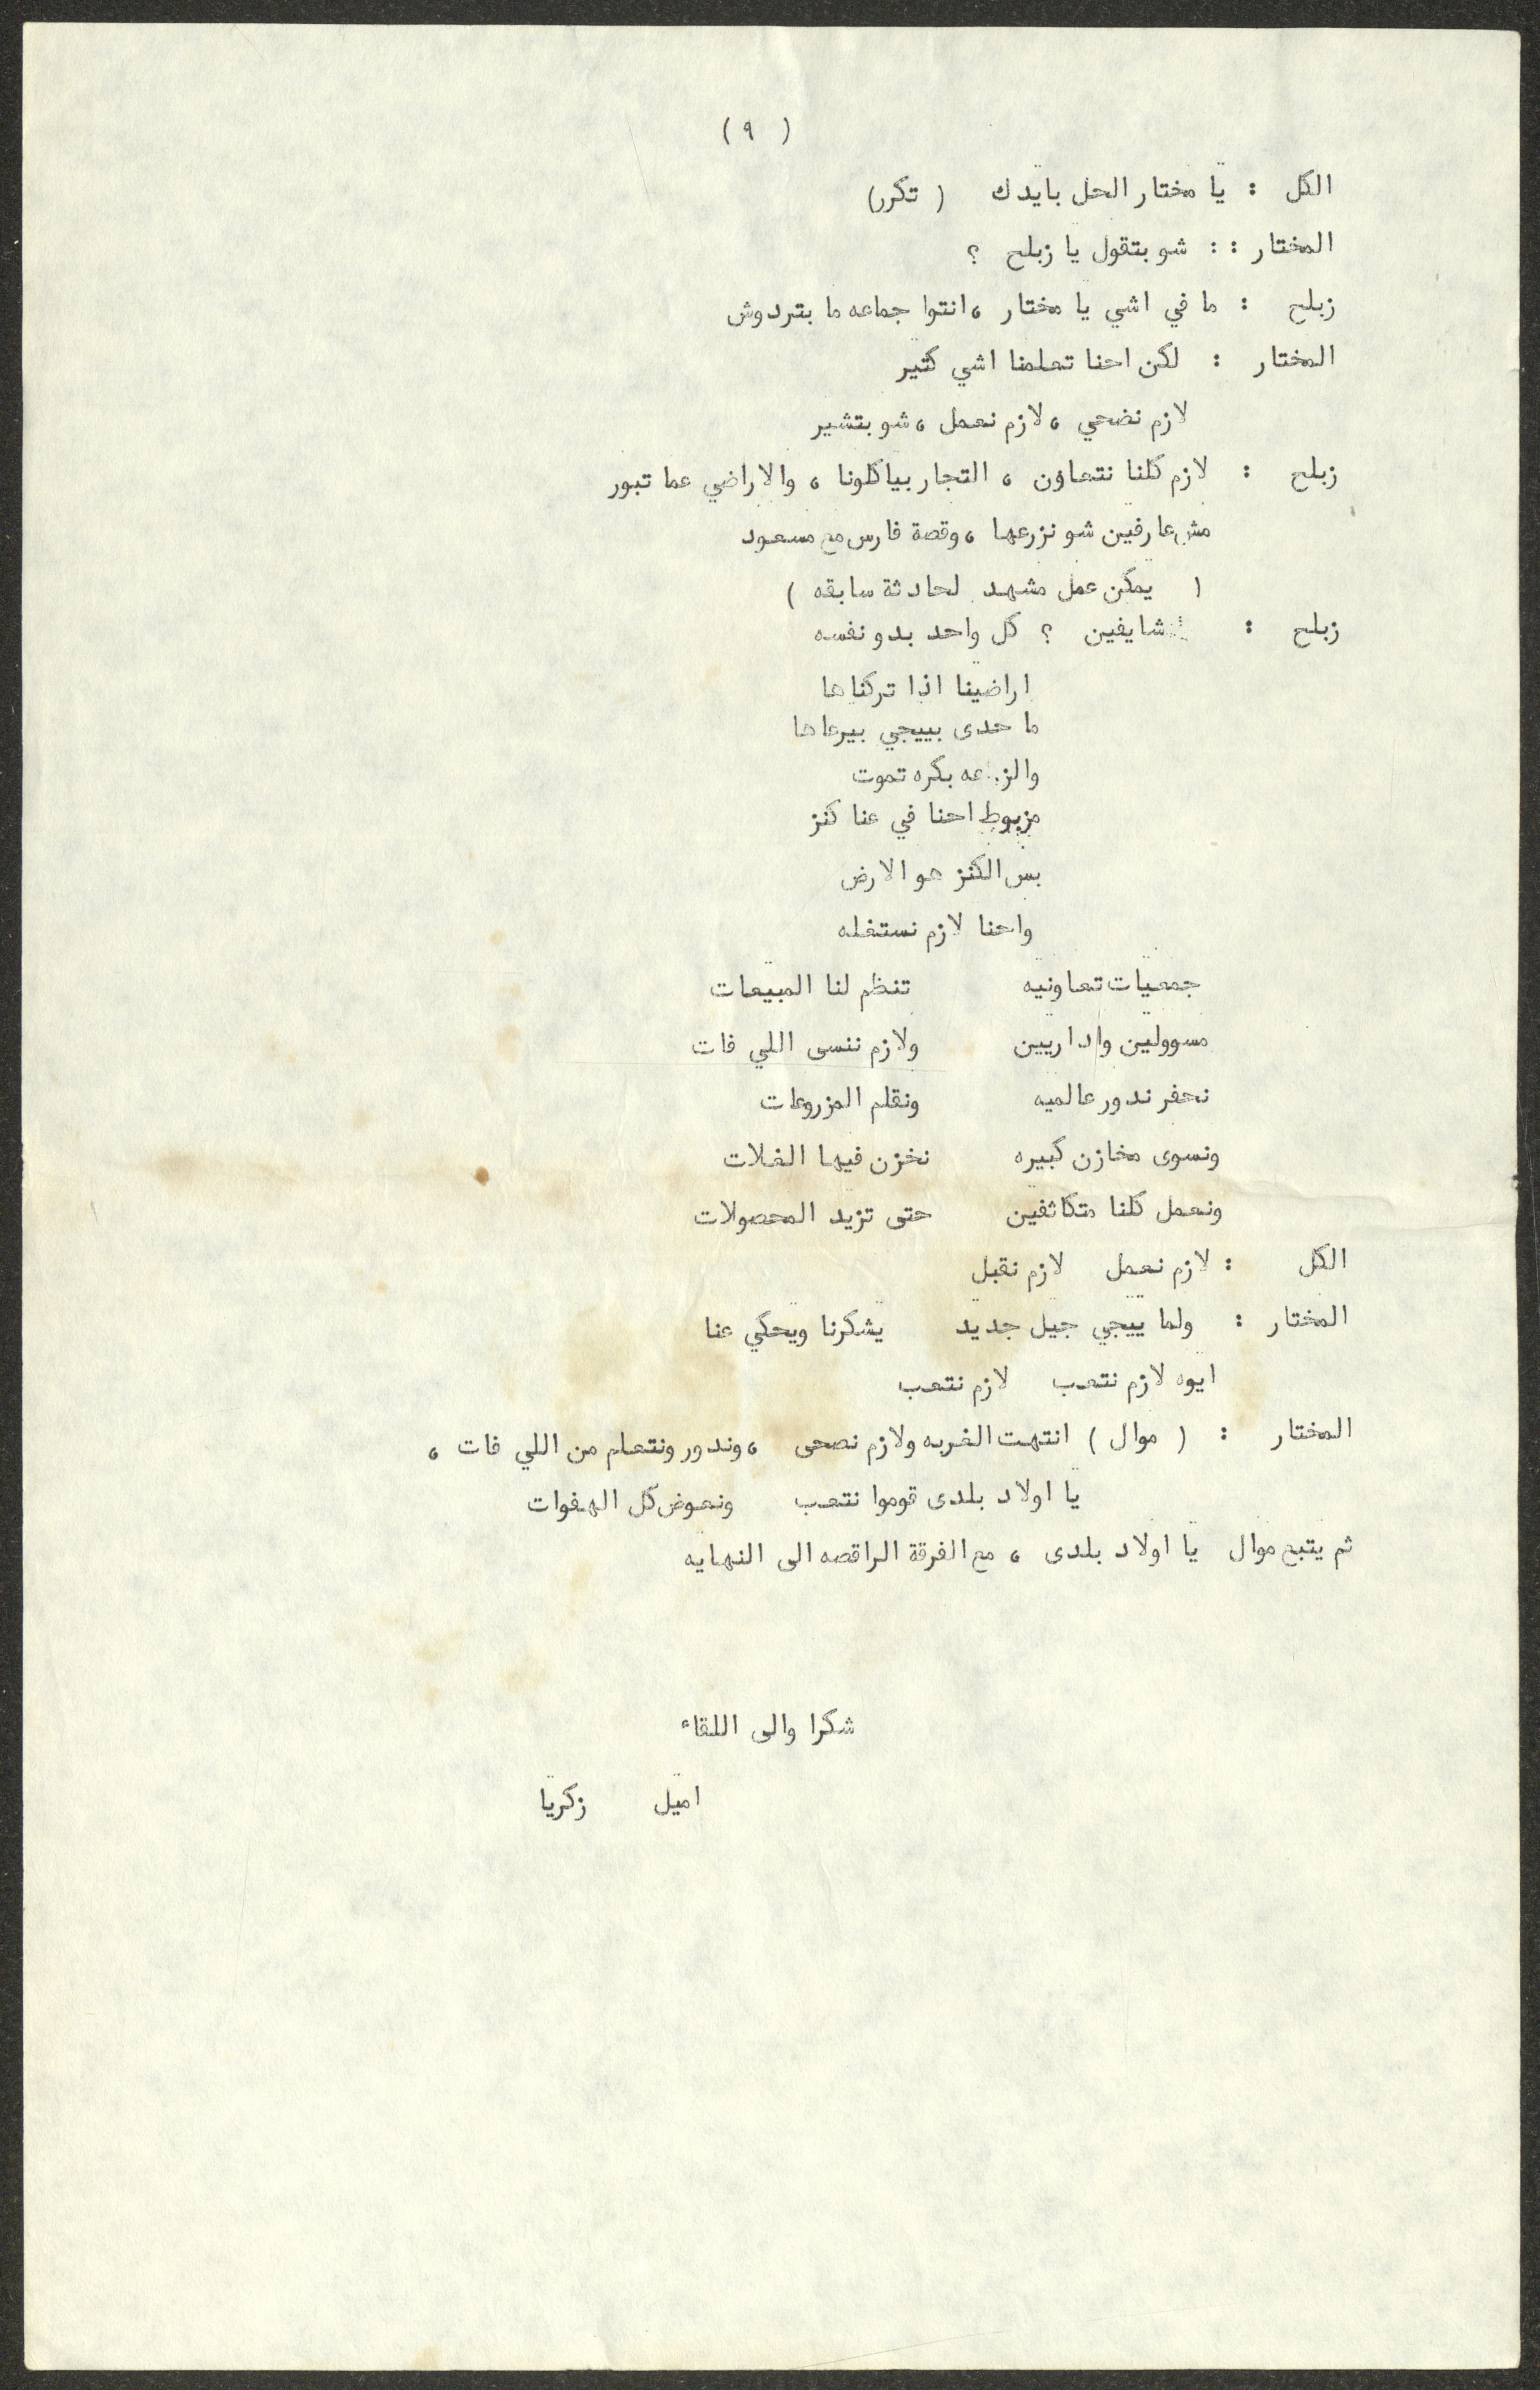 ( ٩ )
الكل : يا مختار الحل بايدك ( تكرر)
المختار : : شو بتقول يا زبلح ؟
زبلح : ما في اشي يا مختار ، انتوا جماعه ما بتردوش
المختار : لكن احنا تعلمنا اشي كتير
لازم نضحي ، لازم نعمل ، شو بتشير
زبلح : لازم كلنا نتعاون ، التجار بياكلونا ، والاراضي عما تبور
مش عارفين شو نزرعها ، وقصة فارس مع مسعود
( يمكن عمل مشهد لحادثة سابقه )
زبلح : شايفين ؟ كل واحد بدو نفسه
اراضينا اذا تركناها
ما حدى بييجي بيرعاها
والزراعه بكره تموت
مزبوط احنا في عنا كنز
بس الكنز هو الارض
واحنا لازم نستغله
جمعيات تعاونيه تنظم لنا المبيعات
مسوولين واداريين ولازم ننسى اللي فات
نحفر ندور عالميه ونقلم المزروعات
ونسوى مخازن كبيره نخزن فيها الغلات
ونعمل كلنا متكاثفين حتى تزيد المحصولات
الكل : لازم نعمل لازم نقبل
المختار : ولما ييجي جيل جديد يشكرنا ويحكي عنا
ايوه لازم نتعب لازم نتعب
المختار : ( موال ) انتهت الغربه ولازم نصحى ، وندور ونتعلم من اللي فات ،
يا اولاد بلدى قوموا نتعب ونعوض كل الهفوات
ثم يتبع موال يا اولاد بلدى ، مع الفرقة الراقصه الى النهايه
شكرا والى اللقاء
اميل زكريا